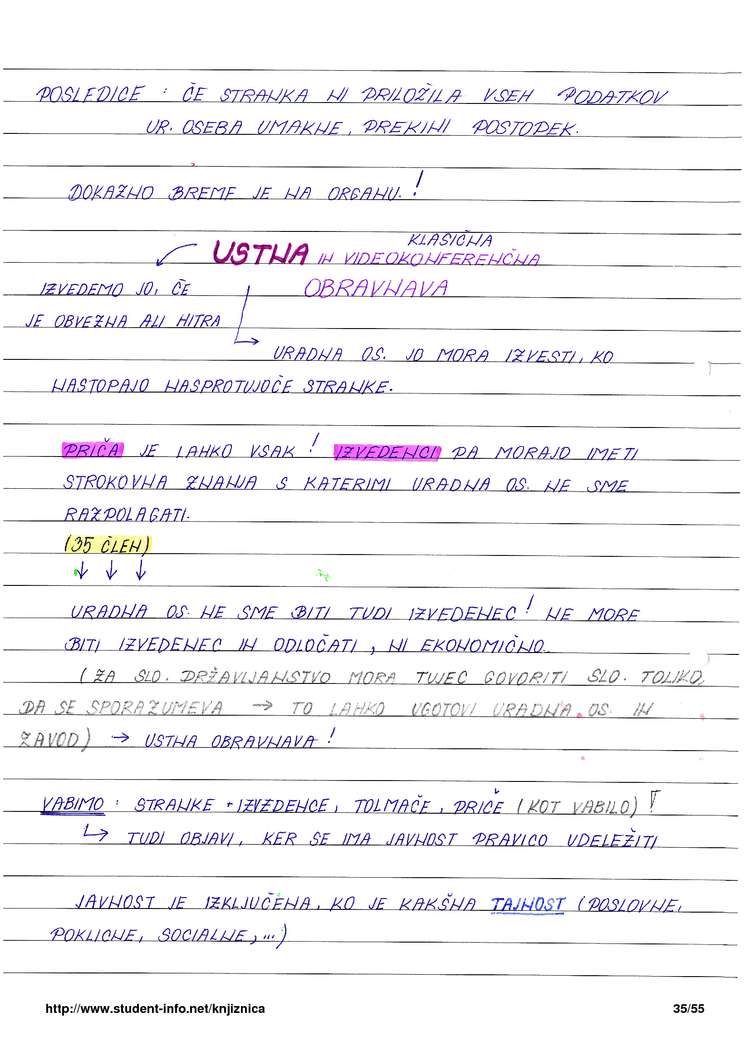 POSLEDICE : ČE STRANKA NI PRILOŽILA VSEH PODATKOV
UR. OSEBA UMAKNE, PREKINI POSTOPEK.
DOKAZNO BREME JE NA ORGANU. !
KLASIČNA
USTNA IN VIDEOKONFERENČNA
IZVEDEMO JO, ČE OBRAVNAVA
JE OBVEZNA ALI HITRA
URADNA OS. JO MORA IZVESTI, KO
NASTOPAJO NASPROTUJOČE STRANKE.
PRIČA JE LAHKO VSAK ! IZVEDENCI PA MORAJO IMETI
STROKOVNA ZNANJA S KATERIMI URADNA OS. NE SME
RAZPOLAGATI.
(35 ČLEN)
↓ ↓ ↓
URADNA OS. NE SME BITI TUDI IZVEDENEC ! NE MORE
BITI IZVEDENEC IN ODLOČATI, NI EKONOMIČNO.
(ZA SLO. DRŽAVLJANSTVO MORA TUJEC GOVORITI SLO. TOLIKO,
DA SE SPORAZUMEVA → TO LAHKO UGOTOVI URADNA OS. IN
ZAVOD) → USTNA OBRAVNAVA !
VABIMO : STRANKE + IZVEDENCE, TOLMAČE, PRIČE (KOT VABILO) !
↳ TUDI OBJAVI, KER SE IMA JAVNOST PRAVICO UDELEŽITI
JAVNOST JE IZKLJUČENA, KO JE KAKŠNA TAJNOST (POSLOVNE,
POKLICNE, SOCIALNE, ...)
http://www.student-info.net/knjiznica 35/55